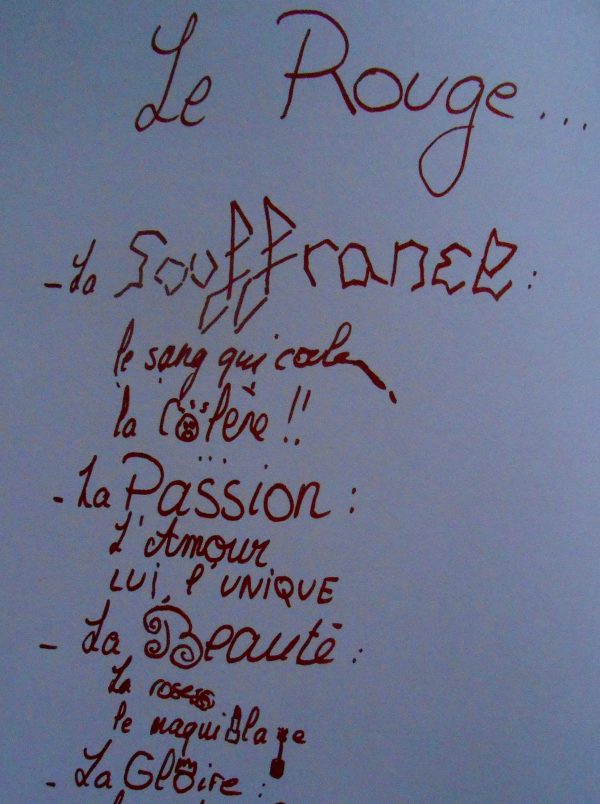 Le Rouge...
- La Souffrance :
le sang qui coule
la Colère !!
- La Passion :
L'Amour
LUI, l'UNIQUE
- La Beauté :
La rose
le maquillage
- La Gloire :